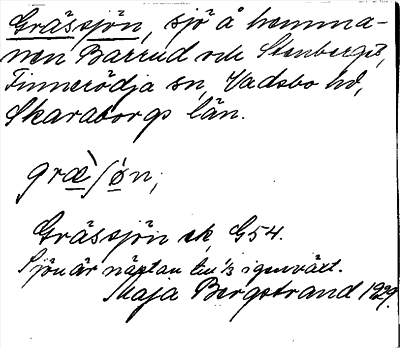 Grässjön, sjö å hemma-
nen Barrud och Stenberget,
Finnerödja sn, Vadsbo hd,
Skaraborgs län.
græ`ʃøn,
Gräsjön ek, G54.
Sjön är nästan till 1/3 igenväxt.
Maja Bergstrand 1929.